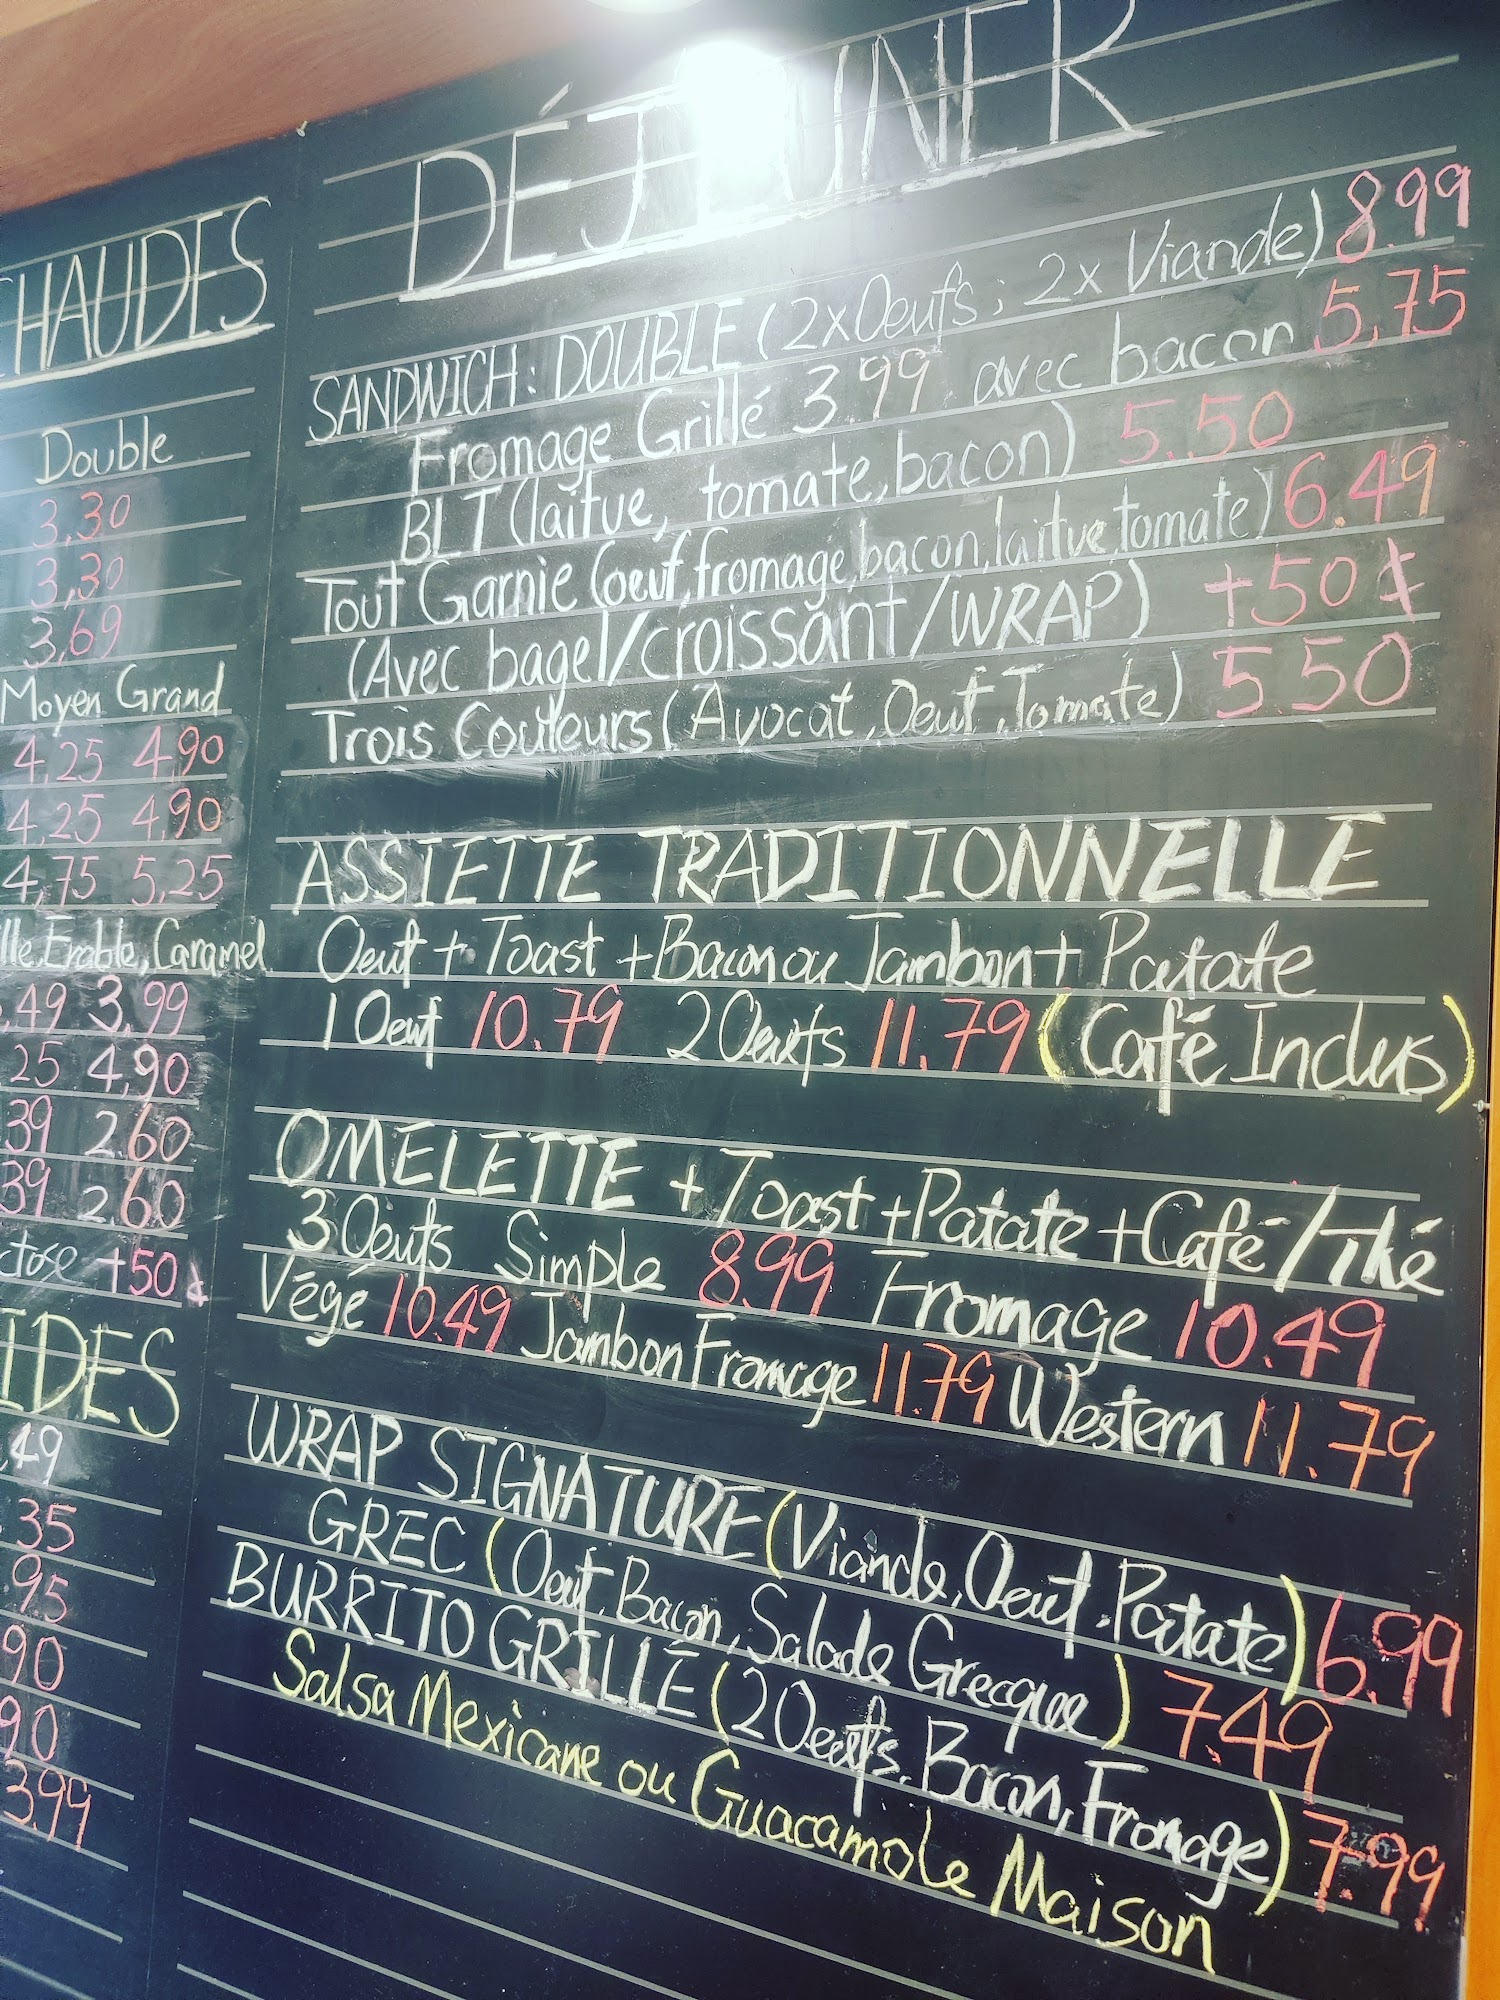 HAUDES
Double
3,30
3,30
3,69
Moyen Grand
4,25 4,90
4,25 4,90
4,75 5,25
Erable, Caramel
49 3,99
25 4,90
39 2.60
39 2.60
+50¢
IDES
49
35
95
90
90
3.99
DÉJEUNER
SANDWICH: DOUBLE (2xOeufs; 2x Viande) 8.99
Fromage Grillé 3.99 avec bacon 5,75
BLT (laitue, tomate, bacon) 5.50
Tout Garnie (oeuf, fromage, bacon, laitue, tomate) 6.49
(Avec bagel/croissant/WRAP) +50¢
Trois Couleurs (Avocat, Oeuf, Tomate) 5.50
ASSIETTE TRADITIONNELLE
Oeuf + Toast + Bacon ou Jambon + Patate
1 Oeuf 10.79 2 Oeufs 11.79 (Café Inclus)
OMELETTE + Toast + Patate + Café/Thé
3 Oeufs Simple 8.99 Fromage 10.49
Végé 10.49 Jambon Fromage 11.79 Western 11.79
WRAP SIGNATURE (Viande, Oeuf, Patate) 6.99
GREC (Oeuf, Bacon, Salade Grecque) 7.49
BURRITO GRILLÉ (2 Oeufs, Bacon, Fromage) 7.99
Salsa Mexicane ou Guacamole Maison